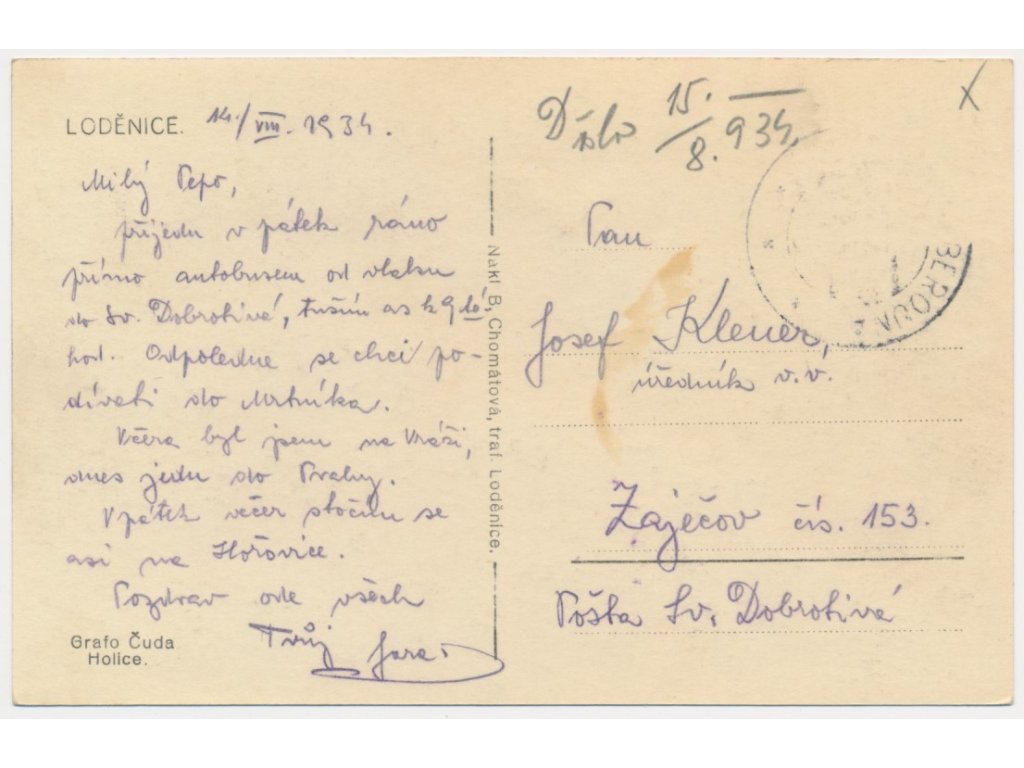 LODĚNICE. 14./VIII. 1934.
Milý Pepo,
přijedu v pátek ráno
přímo autobusem od vlaku
do Sv. Dobrotivé, tuším as k 9té
hod. Odpoledne se chci po-
dívati do Mrtníka.
Včera byl jsem na Vráži,
dnes jedu do Prahy.
V pátek večer stočím se
asi na Hořovice.
Pozdrav ode všech
Tvůj Jara
Grafo Čuda
Holice.
Nakl. B. Chomátová, traf. Loděnice.
Došlo 15./8. 934.
X
BEROUN
Pan
Josef Klener,
úředník v. v.
Zaječov čís. 153.
Pošta Sv. Dobrotivá